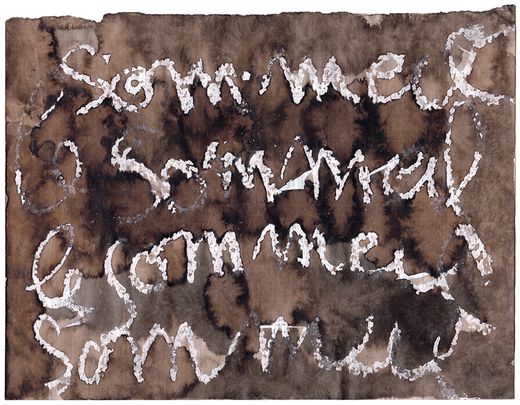 Sommeil
Sommeil
le sommeil
Sommeil